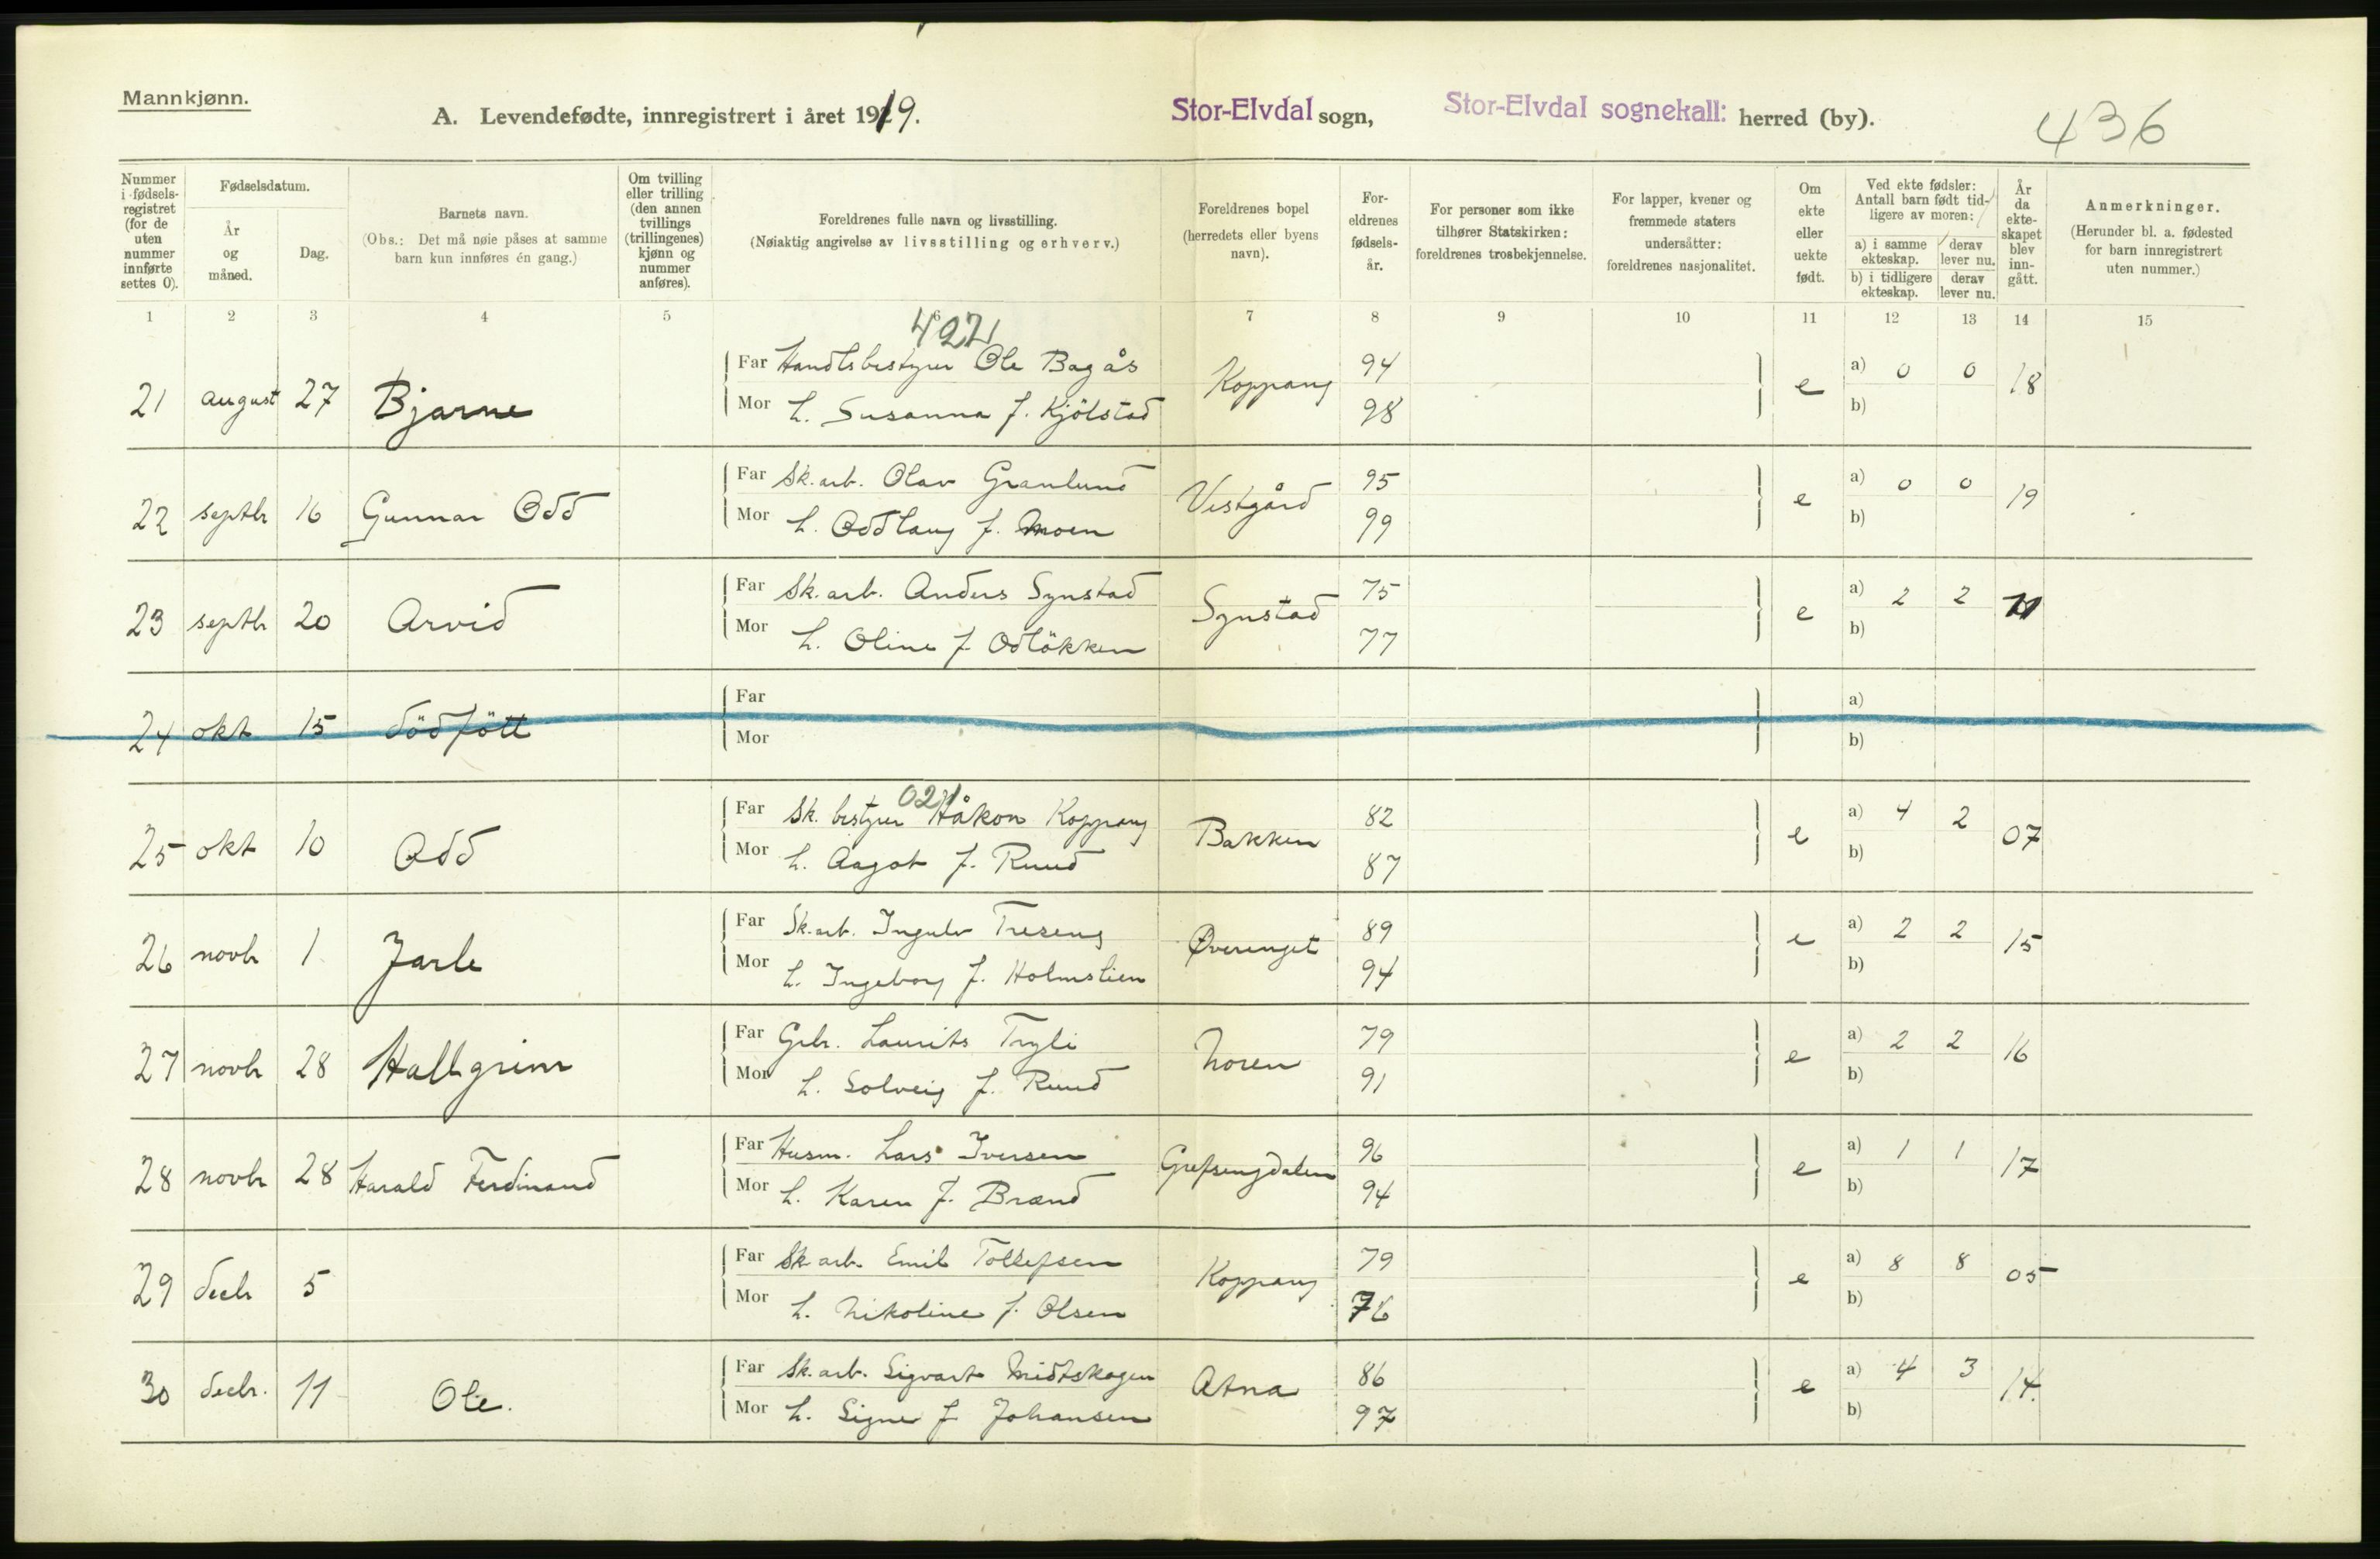 Mannkjønn.
A. Levendefødte, innregistrert i året 1919.
Stor-Elvdal sogn, Stor-Elvdal sognekall: herred (by).
436
Nummer i fødselsregistret (for de uten nummer innførte settes 0).
Fødselsdatum.
År og måned.
Dag.
Barnets navn.
(Obs.: Det må nøie påses at samme barn kun innføres én gang.)
Om tvilling eller trilling (den annen tvillings (trillingenes) kjønn og nummer anføres).
Foreldrenes fulle navn og livsstilling.
(Nøiaktig angivelse av livsstilling og erhverv.)
Foreldrenes bopel (herredets eller byens navn).
Foreldrenes fødselsår.
For personer som ikke tilhører Statskirken: foreldrenes trosbekjennelse.
For lapper, kvener og fremmede staters undersåtter: foreldrenes nasjonalitet.
Om ekte eller uekte født.
Ved ekte fødsler: Antall barn født tidligere av moren:
a) i samme ekteskap. derav lever nu.
b) i tidligere ekteskap. derav lever nu.
År da ekteskapet blev inngått.
Anmerkninger.
(Herunder bl. a. fødested for barn innregistrert uten nummer.)
1 2 3 4 5 6 7 8 9 10 11 12 13 14 15
21 august 27 Bjarne Far Handlsbestyrer Ole Bagås Koppang 94 e a) 0 0 18
Mor h. Susanna f. Kjölstad 98 b)
22 septbr 16 Gunnar Odd Far Sk. arb. Olav Granlund Vestgård 95 e a) 0 0 19
Mor h. Oddlaug f. Moen 99 b)
23 septbr 20 Arvid Far Sk. arb. Anders Synstad Synstad 75 e a) 2 2 11
Mor h. Oline f. Odlökken 77 b)
24 okt 15 dödfött Far a)
Mor b)
25 okt 10 Odd Far Sk. bestyrer Håkon Koppang Bakken 82 e a) 4 2 07
Mor h. Aagot f. Ruud 87 b)
26 novbr 1 Jarle Far Sk. arb. Ingulv Treseng Øverenget 89 e a) 2 2 15
Mor h. Ingeborg f. Holmslien 94 b)
27 novbr 28 Hallgrim Far Grbr. Laurits Tryli Noren 79 e a) 2 2 16
Mor h. Solveig f. Ruud 91 b)
28 novbr 28 Harald Ferdinand Far Husm. Lars Iversen Grefsengdalen 96 e a) 1 1 17
Mor h. Karen f. Brænd 94 b)
29 decbr 5 Far Sk arb. Emil Tollefsen Koppang 79 e a) 8 8 05
Mor h. Nikoline f. Olsen 76 b)
30 decbr. 11 Ole. Far Sk. arb. Sigvart Midtskogen Atna 86 e a) 4 3 14.
Mor h. Signe f. Johansen 97 b)